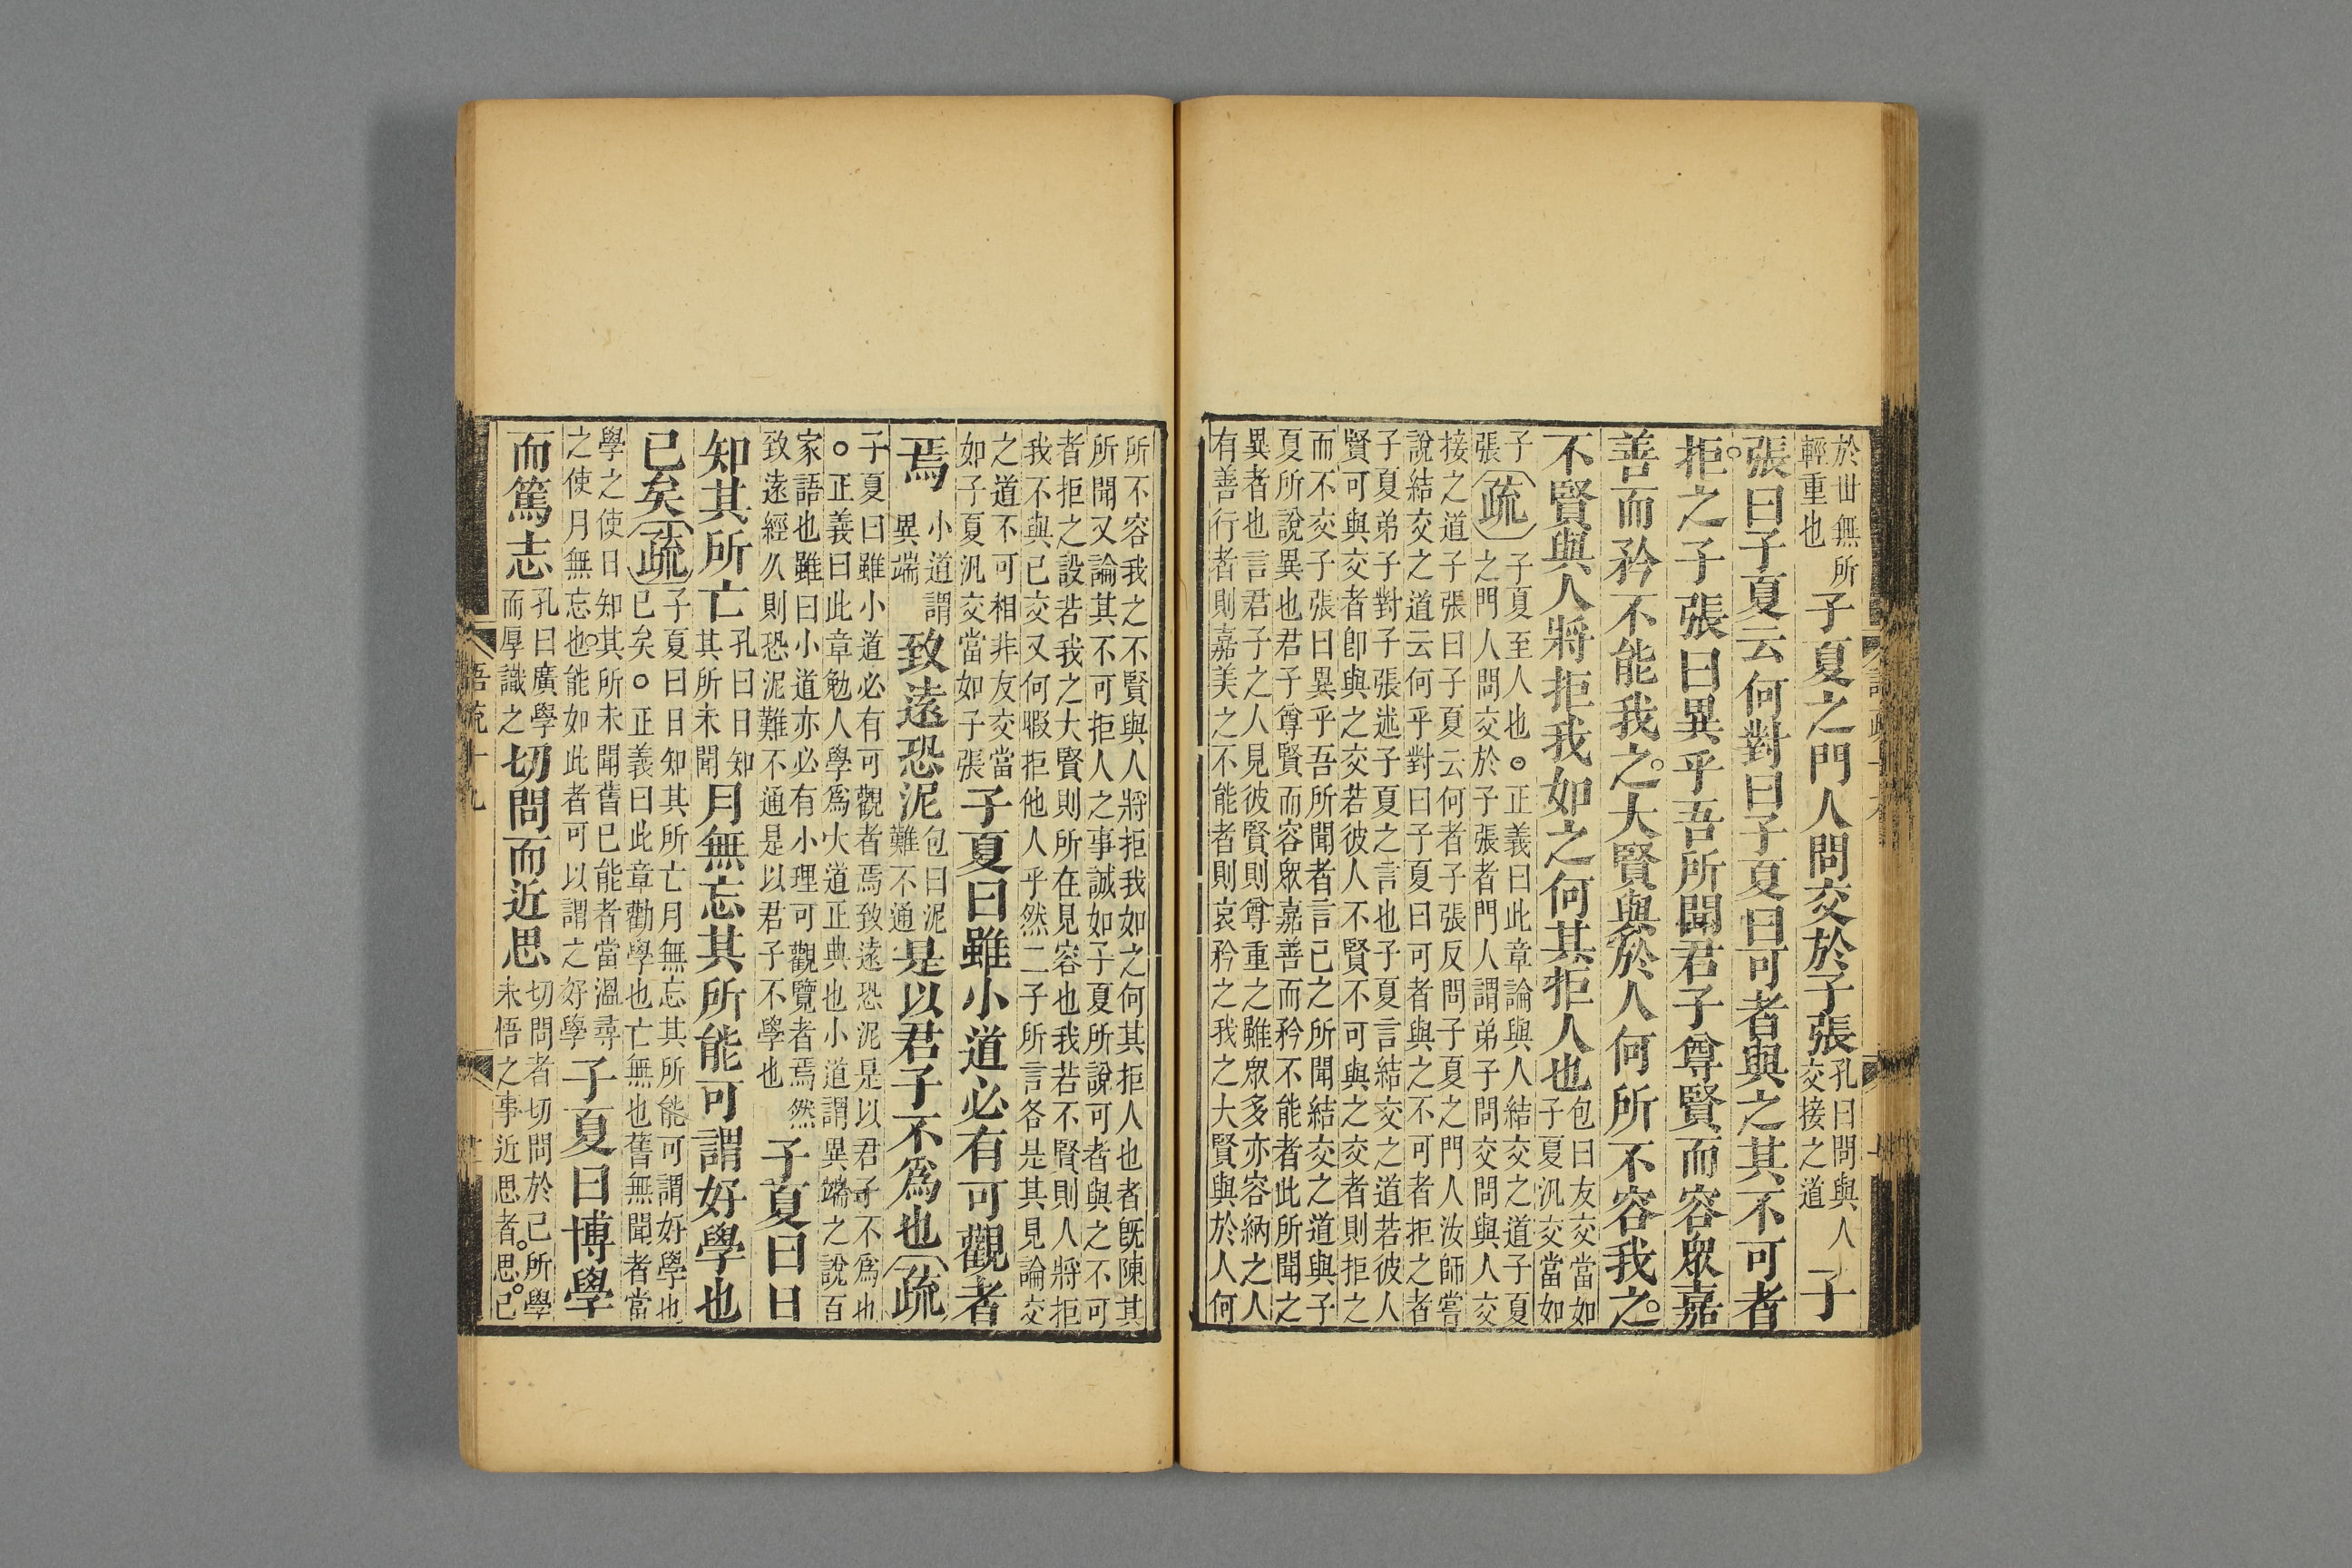 於世無所輕重也子夏之門人問交於子張孔曰問與人交接之道子
張曰子夏云何對曰子夏曰可者與之其不可者
拒之子張曰異乎吾所聞君子尊賢而容眾嘉
善而矜不能我之大賢與於人何所不容我之
不賢與人將拒我如之何其拒人也包曰友交當如子夏汎交當如
子張疏子夏至人也○正義曰此章論與人結交之道子夏之門人問交於子張者門人謂弟子問交問與人交
接之道子張曰子夏云何者子張反問子夏之門人汝師嘗
說結交之道云何乎對曰子夏曰可者與之不可者拒之者
子夏弟子對子張述子夏之言也子夏言結交之道若彼人
賢可與交者卽與之交若彼人不賢不可與之交者則拒之
而不交子張曰異乎吾所聞者言已之所聞結交之道與子
夏所說異也君子尊賢而容眾嘉善而矜不能者此所聞之
異者也言君子之人見彼賢則尊重之雖眾多亦容納之人
有善行者則嘉美之不能者則哀矜之我之大賢與於人何
所不容我之不賢與人將拒我如之何其拒人也者旣陳其
所聞又論其不可拒人之事誠如子夏所說可者與之不可
者拒之設若我之大賢則所在見容也我若不賢則人將拒
我不與已交又何暇拒他人乎然二子所言各是其見論交
之道不可相非友交當
如子夏汎交當如子張子夏曰雖小道必有可觀者
焉小道謂異端致遠恐泥包曰泥難不通是以君子不爲也疏
子夏曰雖小道必有可觀者焉致遠恐泥是以君子不爲也
○正義曰此章勉人學爲大道正典也小道謂異端之說百
家語也雖曰小道亦必有小理可觀覽者焉然
致遠經久則恐泥難不通是以君子不學也子夏曰日
知其所亡孔曰日知其所未聞月無忘其所能可謂好學也
已矣疏子夏曰日知其所亡月無忘其所能可謂好學也已矣○正義曰此章勸學也亡無也舊無聞者當
學之使日知其所未聞舊已能者當溫尋
之使月無忘也能如此者可以謂之好學子夏曰博學
而篤志孔曰廣學而厚識之切問而近思切問者切問於已所學未悟之事近思者思已
語疏十九